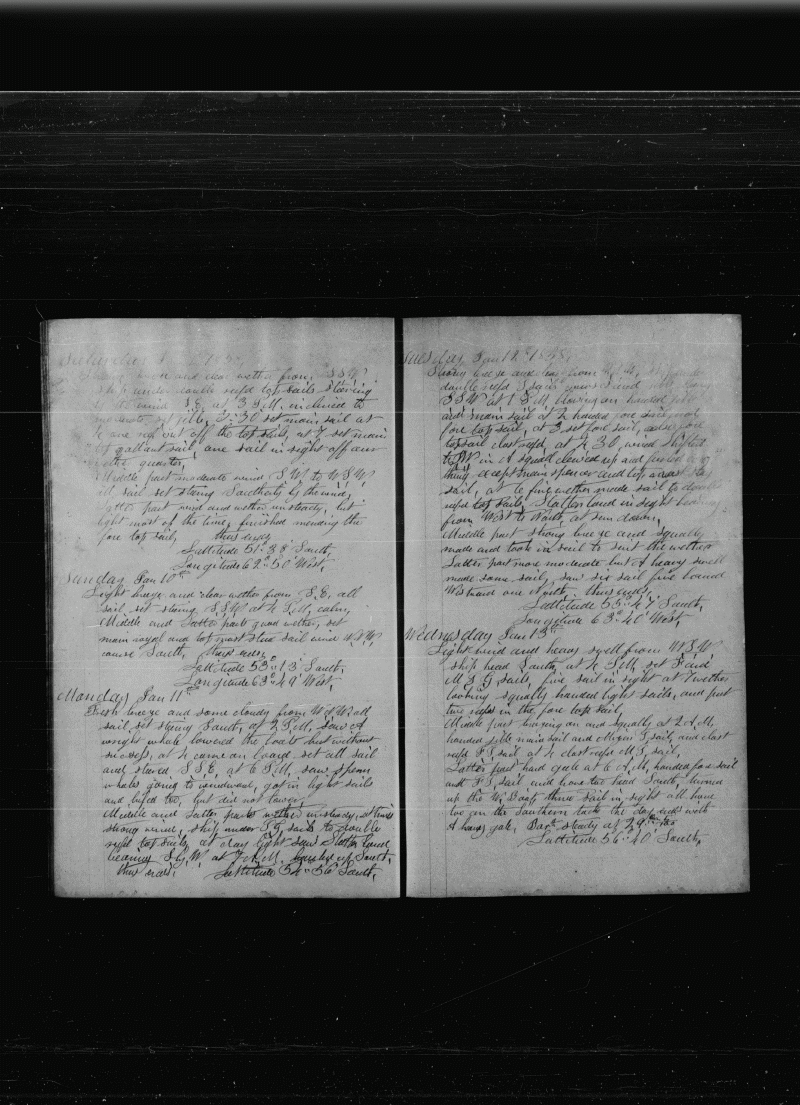 Saturday
breeze and clear wether from SSW
ship under double reefd top sails stearing
by the wind S.E. at 3 P.M. inclined to
moderate set jib, 3-30 set main sail at
4 one reef out off the top sails, at 7 set main
top gallant sail, one sail in sight off our
quarter,
Middle part moderate wind S.W. to W.S.W
all sail set stearing Southerly by the wind,
Latter part wind and wether unsteady, but
light most of the time, finished mending the
fore top sail, thus ends
Lattitude 51° 38' South,
Longitude 62° 50' West
Sunday Jan 10th
Light breeze and clear wether from S.E. all
sail set stearing S.S.W at 4 P.M. calm,
Middle and Latter parts good wether, set
main royal and top mast stud sail wind W.S.W
course South, thus ends,
Lattitude 53° 13' South,
Longitude 63° 49' West,
Monday Jan 11th
Fresh breeze and some cloudy from W.S.W. all
sail set stearing South, at 2 P.M. saw A
wright whale lowered the boats but without
success, at 4 came on board set all sail
and steared S.S.E, at 6 P.M. saw sperm
whale going to windward, got in light sails
and lufed too, but did not lower,
Middle and Latter parts wether unsteady, at times
strong wind, ship under T.G. sails to double
reefd top sails, at day light saw Statten Land
bearing S.b.W. at 7 A.M. hauled up South,
thus ends, Lattitude 54° 56' South,
Tuesday Jan 12th 1858
Strong breeze and from
double reefd T sails
SSW at 1 P.M. blowing on handed jib
and main sail at 2 handed fore sail and
fore top sail, at 3 set fore sail, and fore
top sail close reefd, at 4 30, wind shifted
to W in A squall clewed up and furled every
thing except main spencer and top mast stay
sail, at 6 fine wether made sail to double
reefd top sails, Statten Land in sight bearing
from West to North, at sun down,
Middle part strong breeze and squally
made and took in sail to suit the wether
Latter part more moderate but A heavy swell
made some sail, saw six sail five bound
West and one North, thus ends,
Lattitude 55° 47' South,
Longitude 63° 40' West,
Wednesday Jan 13th
Light wind and heavy swell from W.S.W,
ship head South, at 4 P.M. set F and
M T G sails, five sail in sight at 7 wether
looking squally handed light sails, and put
two reefs in the fore top sail,
Middle part breezing on and squally at 2 A.M,
handed jib main sail and Mizen T, sail, and close
reefd F T, sail at 4 close reefd M T, sail,
Latter part hard gale at 6 A,M, handed fore sail
and F T, sail and hove too head South, turned
up the W. Boat, three sail in sight all hove
too on the southern tack the day ends with
A heavy gale, Bar steady at 29
Lattitude 56° 40' South,